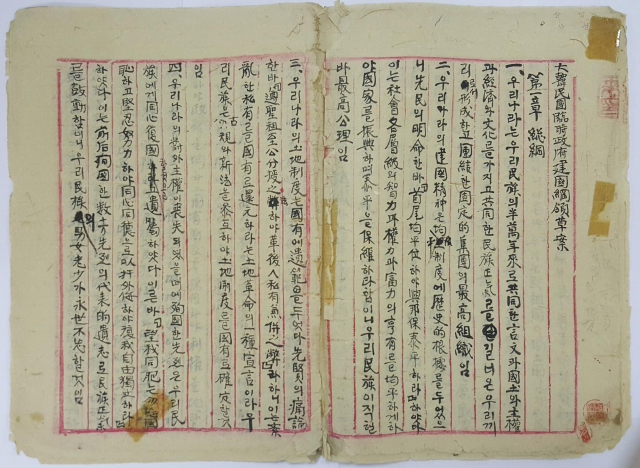 大韓民國臨時政府建國綱領草案
第一章 總綱
一、우리나라는 우리民族의 半萬年來로 共同한 言文과 國土와 主權
과 經濟와 文化를 가지고 共同한 民族正氣를 길너온 우리끼
리 形成하고 團結한 固定的 集團의 最高組織임
二、우리나라의 建國精神은 制度에 歷史的 根據를 두었으
니 先民의 明命한바「首尾均平位하야 興邦保泰平하리라」하야
이는 社會各層級의 智力과 權力과 富力의 享有를 均平하게하
야 國家를 振興하며 泰平을 保維하라함이니 우리民族이 직힐
바 最高公理임
三、우리나라의 土地制度는 國有에 遺範을 두엇다 先賢의 痛論
한바「遵聖祖至公分授之 하야 革後人私有兼併之弊」라하니 이는 紊
亂한 私有를 國有로 還元하라는 土地革命의 一種宣言이라 우
리民族은 古規와 新法을 參互하야 土地制度를 國有로 確定할것
임
四、우리나라의 對外主權이 喪失되엿을때에 殉國한 先烈은 우리民
族에게 同心復國 遺囑하엿다 이른바「望我同胞는 勿忘國
恥하고 堅忍努力하야 同心同德으로 以扞外侮하야 復我自由獨立하라」
하얏다 이는 前后殉國한 數十万先烈의 代表的 遺志로 民族正氣
를 鼓動함이니 우리民族의 男女老少가 永世不忘할것임